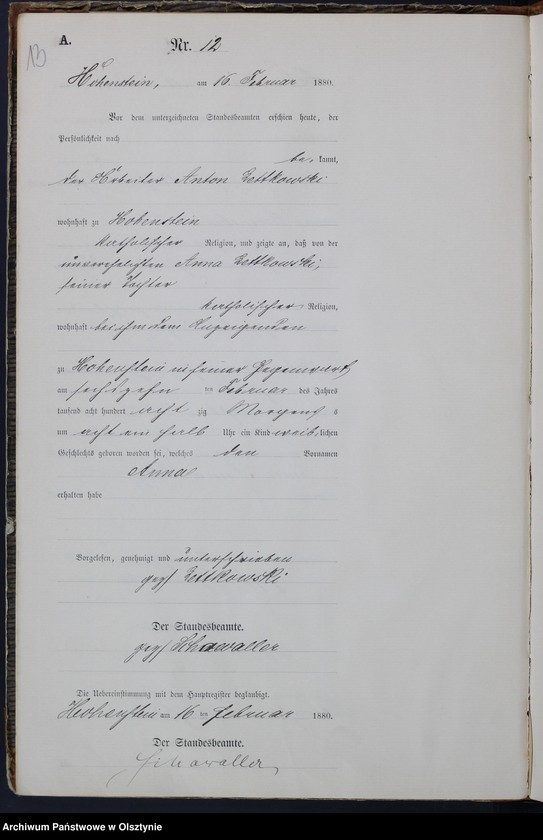 A.
13
Nr. 12
Hohenstein, am 16. Februar 1880.
Vor dem unterzeichneten Standesbeamten erschien heute, der
Persönlichkeit nach
be kannt,
der Arbeiter Anton Zettkowski
wohnhaft zu Hohenstein
katholischer Religion, und zeigte an, daß von der
unverehelichten Anna Zettkowski,
seiner Tochter
katholischer Religion,
wohnhaft bei ihm dem Anzeigenden
zu Hohenstein in seiner Gegenwart
am sechzehn ten Februar des Jahres
tausend acht hundert acht zig Morgens
um acht ein halb Uhr ein Kind weib lichen
Geschlechts geboren worden sei, welches den Vornamen
Anna
erhalten habe
Vorgelesen, genehmigt und unterschrieben
gez/ Zettkowski
Der Standesbeamte.
gez/ Schawaller
Die Uebereinstimmung mit dem Hauptregister beglaubigt.
Hohenstein am 16 ten Februar 1880.
Der Standesbeamte.
Schawaller
Archiwum Państwowe w Olsztynie